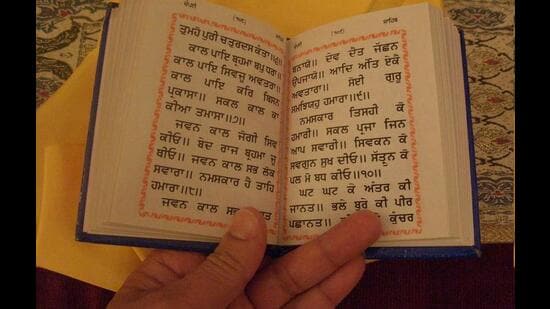 ਚੌਪਈ
ਤੁਮਹੋ ਪੁਰੀ ਚਤੁਰਦਸ ਕੰਤਾ॥੬॥
ਕਾਲ ਪਾਇ ਬ੍ਰਹਮਾ ਬਪੁ ਧਰਾ॥
ਕਾਲ ਪਾਇ ਸਿਵਜੂ ਅਵਤਰਾ॥
ਕਾਲ ਪਾਇ ਕਰਿ ਬਿਸਨ
ਪ੍ਰਕਾਸਾ॥ ਸਕਲ ਕਾਲ ਕਾ
ਕੀਆ ਤਮਾਸਾ॥੭॥
ਜਵਨ ਕਾਲ ਜੋਗੀ ਸਿਵ
ਕੀਓ॥ ਬੇਦ ਰਾਜ ਬ੍ਰਹਮਾ ਜੂ
ਥੀਓ॥ ਜਵਨ ਕਾਲ ਸਭ ਲੋਕ
ਸਵਾਰਾ॥ ਨਮਸਕਾਰ ਹੈ ਤਾਹਿ
ਹਮਾਰਾ॥੮॥
ਜਵਨ ਕਾਲ ਸਭ
ਚੌਪਈ ਸਾਹਿਬ
ਬਨਾਯੋ॥ ਦੇਵ ਦੈਤ ਜੱਛਨ
ਉਪਜਾਯੋ॥ ਆਦਿ ਅੰਤਿ ਏਕੋ
ਅਵਤਾਰਾ॥ ਸੋਈ ਗੁਰੂ
ਸਮਝਿਯਹੁ ਹਮਾਰਾ॥੯॥
ਨਮਸਕਾਰ ਤਿਸਹੀ ਕੋ
ਹਮਾਰੀ॥ ਸਕਲ ਪ੍ਰਜਾ ਜਿਨ
ਆਪ ਸਵਾਰੀ॥ ਸਿਵਕਨ ਕੋ
ਸਵਗੁਨ ਸੁਖ ਦੀਓ॥ ਸੱਤ੍ਰੁਨ ਕੋ
ਪਲ ਮੋ ਬਧ ਕੀਓ॥੧੦॥
ਘਟ ਘਟ ਕੇ ਅੰਤਰ ਕੀ
ਜਾਨਤ॥ ਭਲੇ ਬੁਰੇ ਕੀ ਪੀਰ
ਪਛਾਨਤ॥ ਤੇ ਕੁੰਚਰ